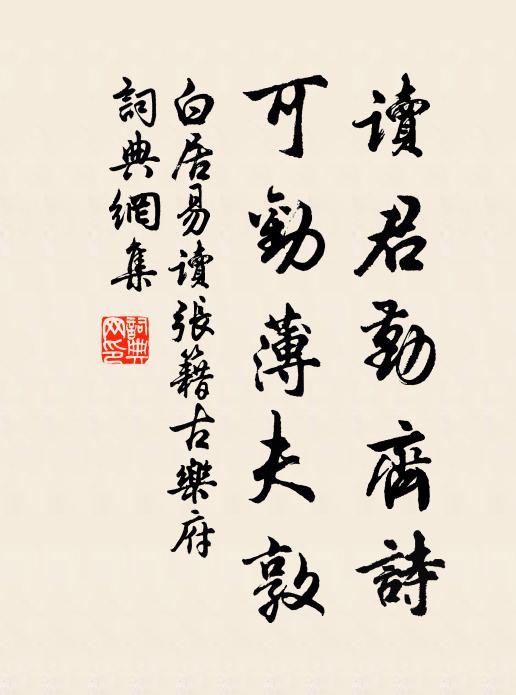 讀君勤齊詩
可勸薄夫敦
白居易讀張籍古樂府
詞典網集
詞典网印